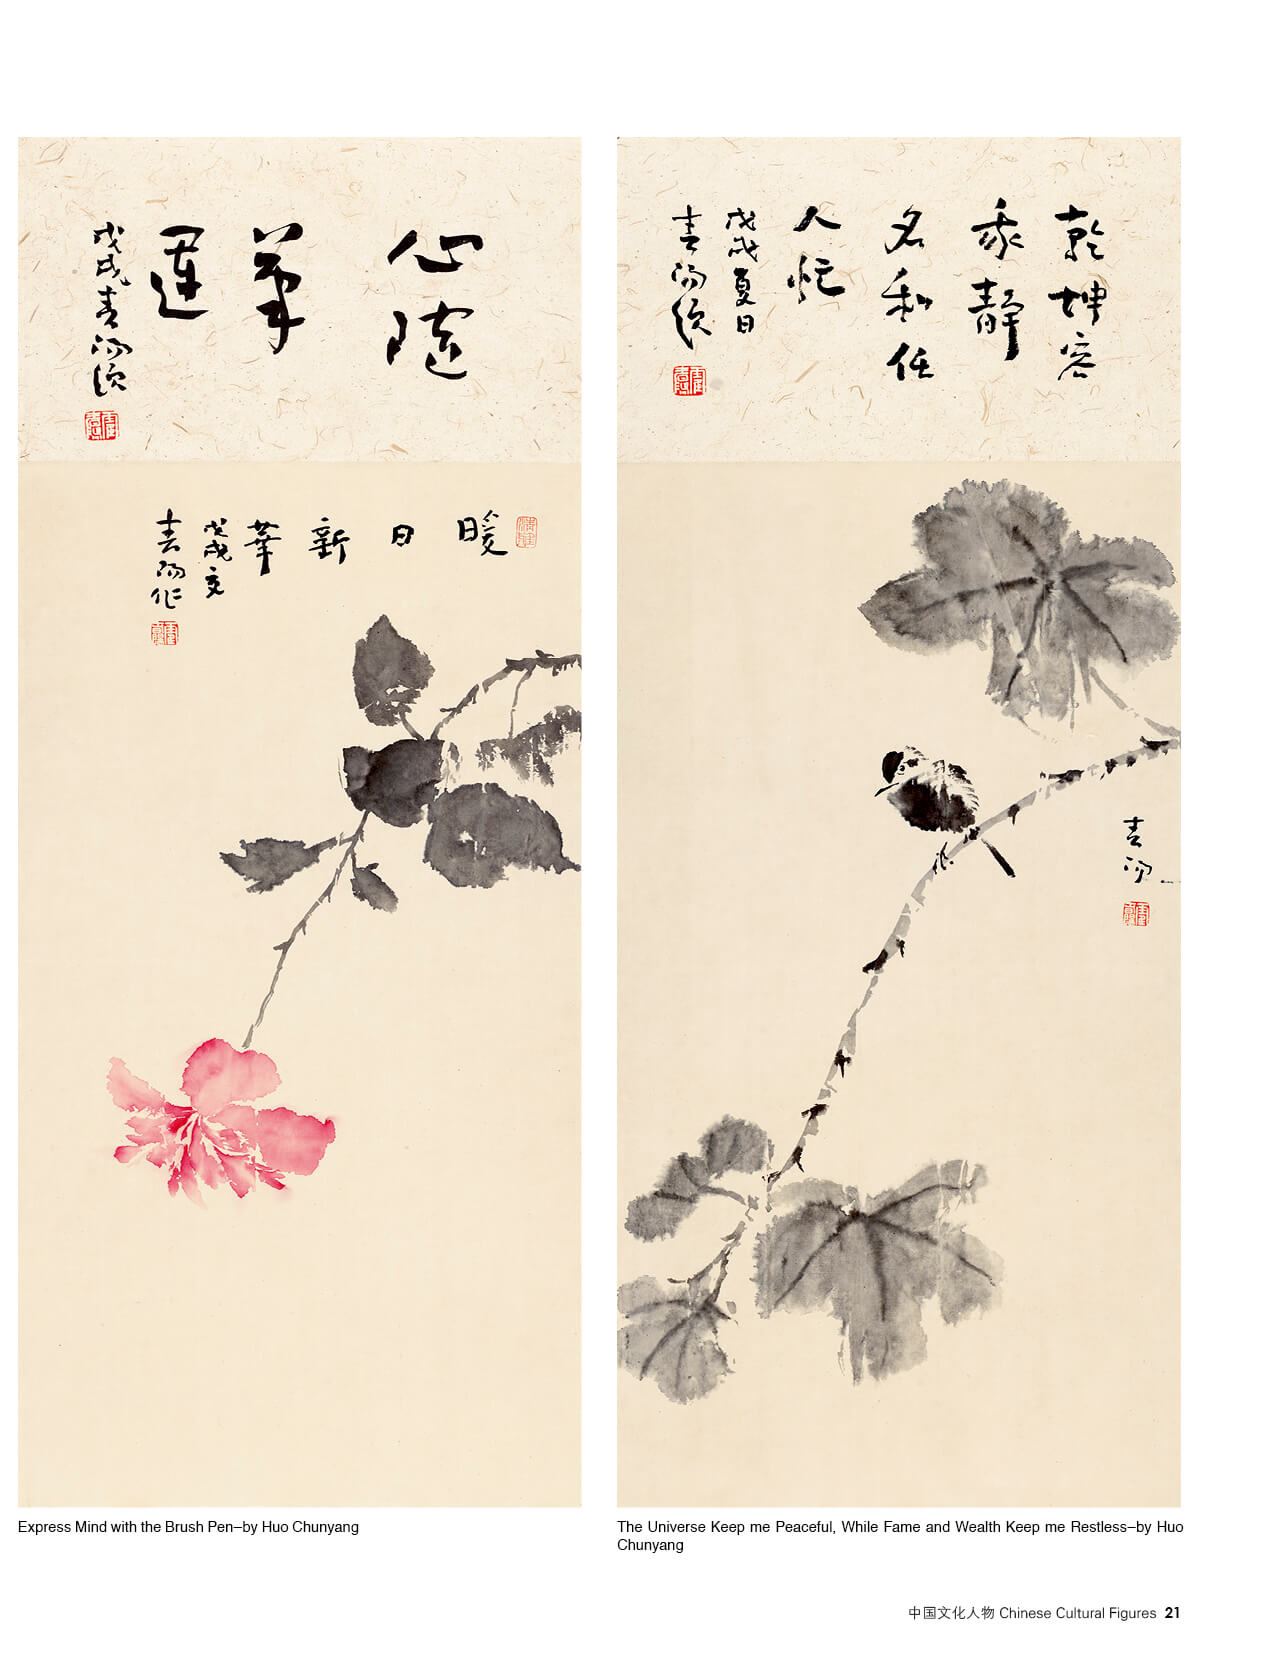 心隨
筆
運
戊戌春陽題
乾坤容
我靜
名利任
人忙
戊戌夏日
春陽題
暖
日
新
華
戊戌夏
春陽作
春陽
Express Mind with the Brush Pen–by Huo Chunyang
The Universe Keep me Peaceful, While Fame and Wealth Keep me Restless–by Huo
Chunyang
中国文化人物 Chinese Cultural Figures 21